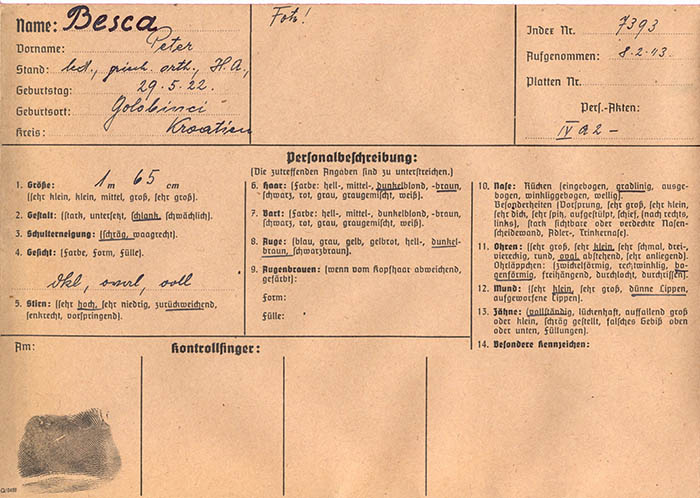 Name: Besca
Vorname: Peter
Stand: led., griech. orth., H.A.,
Geburtstag: 29.5.22.
Geburtsort: Golobinci
Kreis: Kroatien
Foto!
Index Nr. 7393
Aufgenommen: 8.2.43.
Platten Nr.
Pers.-Akten:
IV A 2 –
Personalbeschreibung:
(Die zutreffenden Angaben sind zu unterstreichen.)
1. Größe: 1 m 65 cm
(sehr klein, klein, mittel, groß, sehr groß).
2. Gestalt: (stark, untersetzt, schlank, schwächlich).
3. Schulterneigung: (schräg, waagrecht).
4. Gesicht: (Farbe, Form, Fülle).
dkl, oval, voll
5. Stirn: (sehr hoch, sehr niedrig, zurückweichend,
senkrecht, vorspringend).
6. Haar: (Farbe: hell-, mittel-, dunkelblond, -braun,
schwarz, rot, grau, graugemischt, weiß).
7. Bart: (Farbe: hell-, mittel-, dunkelblond, -braun,
schwarz, rot, grau, graugemischt, weiß).
8. Auge: (blau, grau, gelb, gelbrot, hell-, dunkel-
braun, schwarzbraun).
9. Augenbrauen: (wenn vom Kopfhaar abweichend,
gefärbt):
Form:
Fülle:
10. Nase: Rücken (eingebogen, gradlinig, ausge-
bogen, winkliggebogen, wellig).
Besonderheiten (Vorsprung, sehr groß, sehr klein,
sehr dick, sehr spitz, aufgestülpt, schief, (nach rechts,
links), stark sichtbare oder verdeckte Nasen-
scheidewand, Adler-, Trinkernase).
11. Ohren: (sehr groß, sehr klein, sehr schmal, drei-
viereckig, rund, oval abstehend, sehr anliegend).
Ohrläppchen: (zwickelförmig, rechtwinklig, bo-
genförmig, freihängend, durchlocht, durchrissen).
12. Mund: (sehr klein, sehr groß, dünne Lippen,
aufgeworfene Lippen).
13. Zähne: (vollständig, lückenhaft, auffallend groß
oder klein, schräg gestellt, falsches Gebiß oben
oder unten, Füllungen).
14. Besondere Kennzeichen:
Am:
Kontrollfinger: